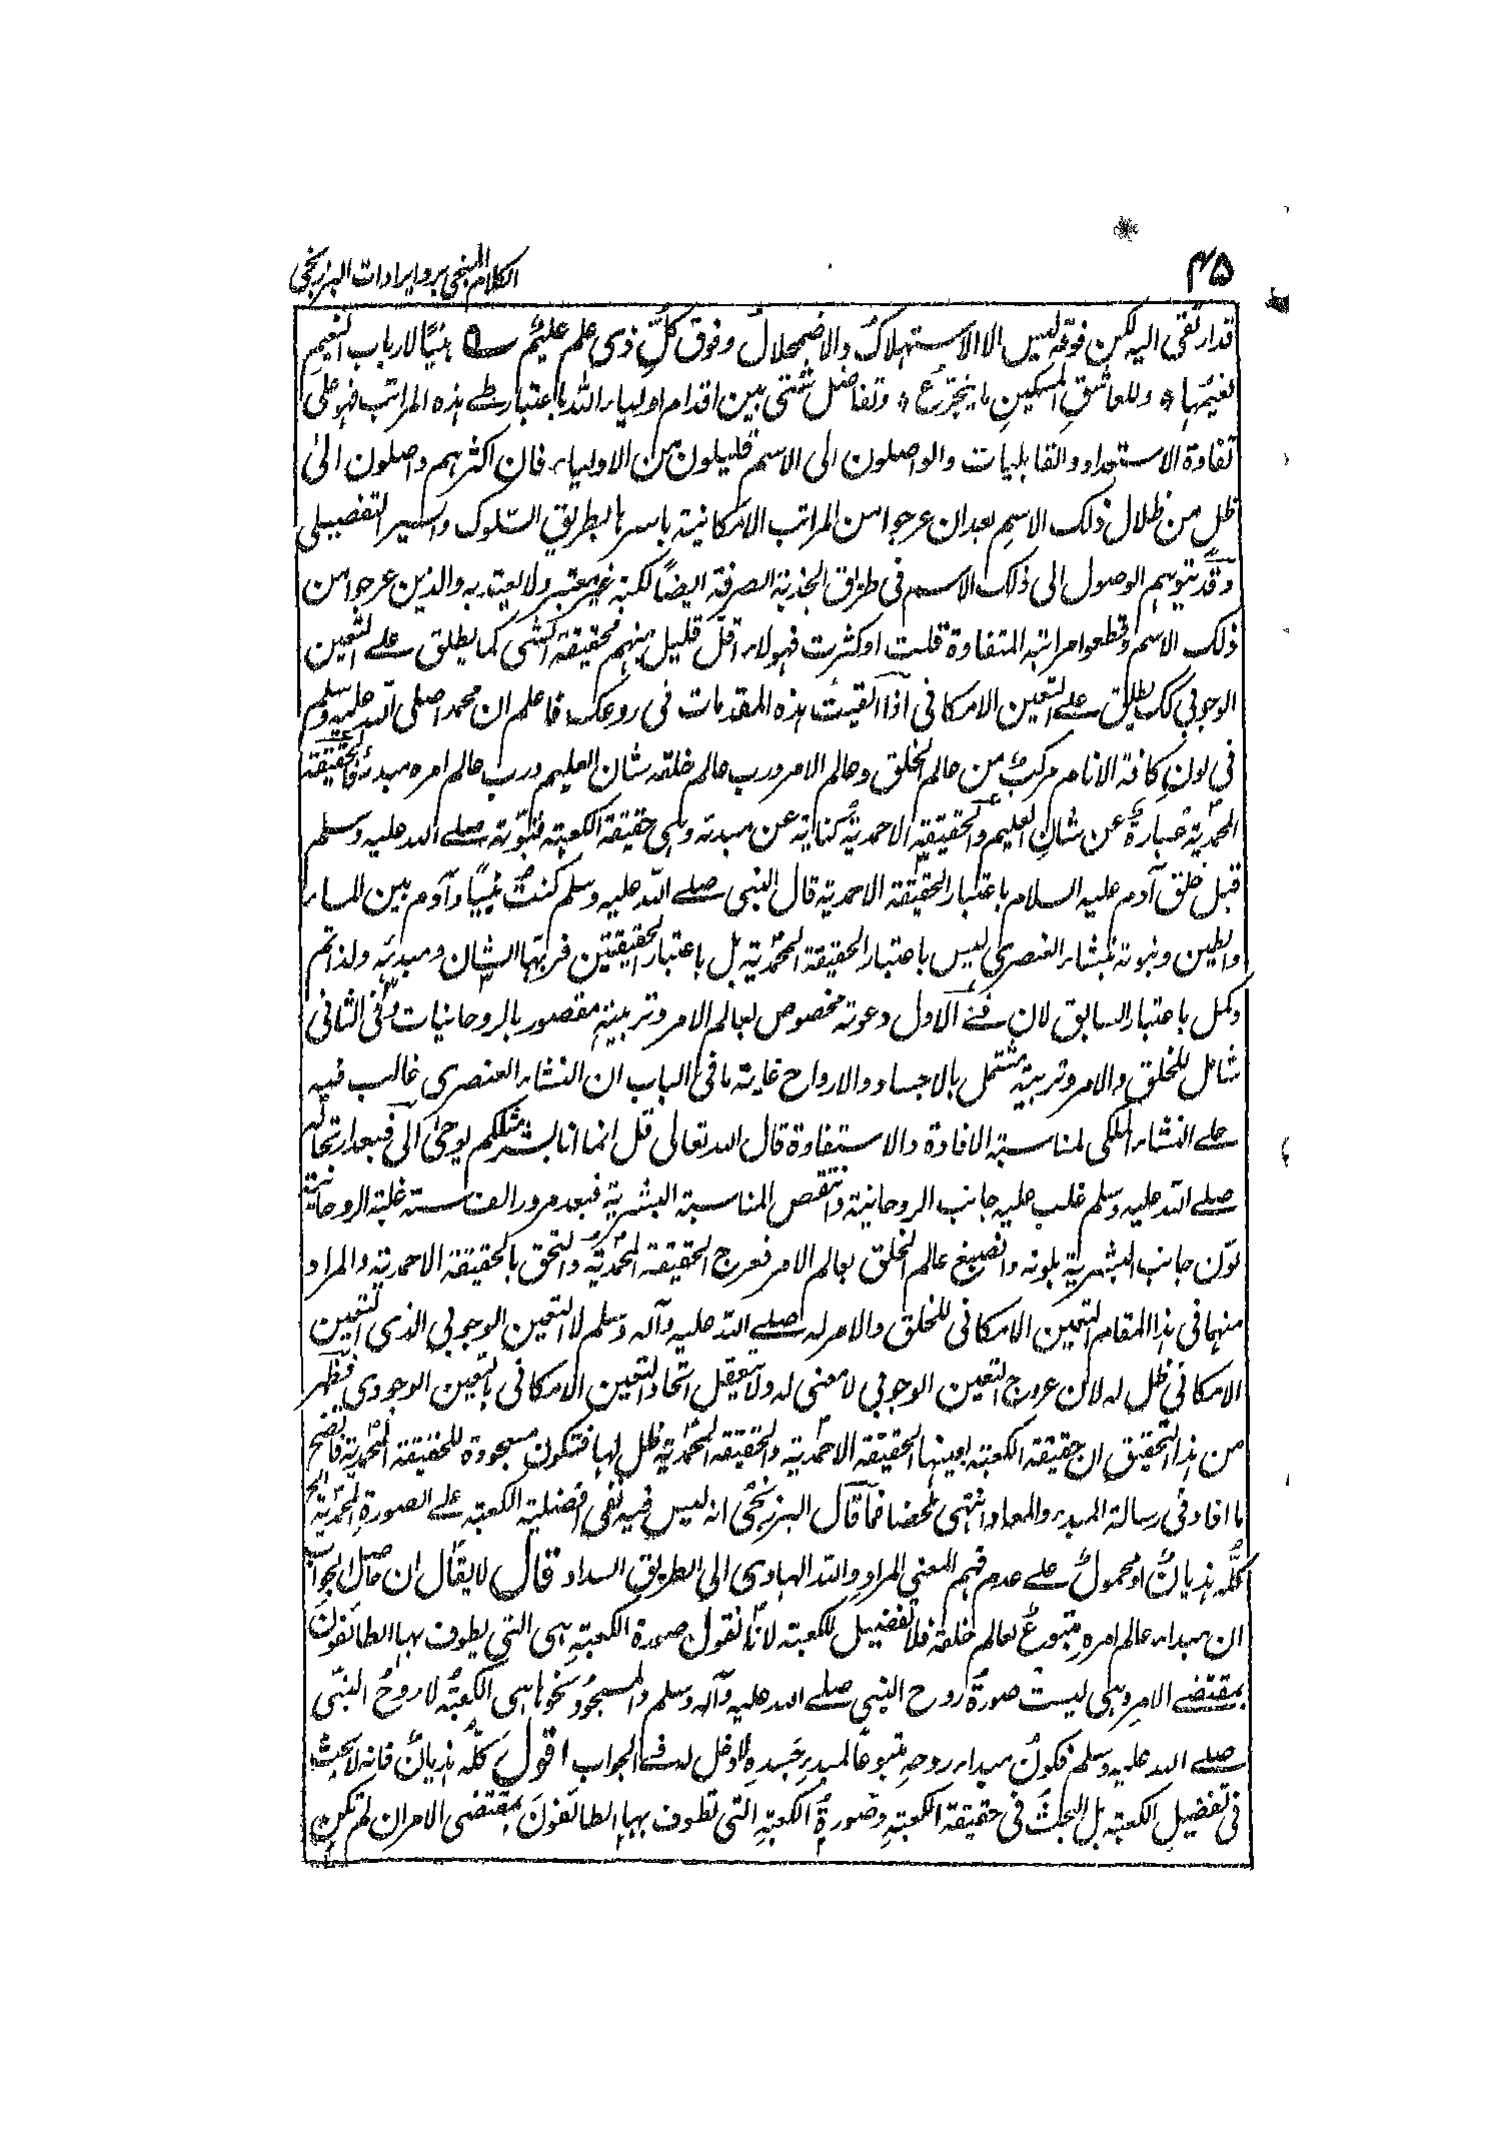 ۴۵
الكلام المنجی برد ایرادات البرزنجی
قدار تقی الیه لکن فوقه لیس الا الاستهلاکُ والاضمحلالُ وفوق کلِّ ذی علم علیمٌ ے هنیًا لارباب النعیمِ
نعیمُها ۞ وللعاشقِ المسکینِ ما یتجرّعُ ۞ وتفاضل شتی بین اقدام اولیاء الله باعتبار طے هذه المراتب فهو علی
تفاوة الاستعداد والقابلیات والواصلون الی الاسم قلیلون من الاولیاء فان اکثرهم واصلون الیٰ
ظل من ظلال ذلک الاسمِ بعد ان عرجوا من المراتب الامکانیة باسرها بطریق السّلوک والسیر التفصیلی
وقد یتوهم الوصول الی ذلک الاسم فی طریق الجذبة الصرفة ایضًا لکنه غیر معتبر ولا یعتد به والذین عرجوا من
ذلک الاسم وقطعوا مراتبه المتفاوة قلت او کثرت فهولاء اقلّ قلیل منهم فحقیقة الشی کما یطلق علے التعین
الوجوبی کک یطلق علے التعین الامکانی اذا القیت هذه المقدمات فی روعک فاعلم ان محمدا صلی الله علیه وسلم
فی لونِ کافة الانام مرکبٌ من عالم الخلق وعالم الامر ورب عالم خلقه شان العلیم ورب عالم امره مبدئه فالحقیقة
المحمدیة عبارةٌ عن شان العلیم والحقیقة الاحمدیةُ کنایة عن مبدئه وهی حقیقة الکعبة فنبوّته صلے الله علیه وسلم
قبل خلق آدم علیه السلام باعتبار الحقیقة الاحمدیة قال النبی صلے الله علیه وسلم کنتُ نبیًا وآدم بین الماء
والطین ونبوته بنشاء العنصری لیس باعتبار الحقیقة المحمدیة بل باعتبار الحقیقتین فربّها الشان ومبدئه ولذا تم
وکمل باعتبار السابق لان فے الاول دعوته مخصوص لعالم الامر وتربیتهِ مقصور بالروحانیات وفی الثانی
شامل للخلق والامر وتربیته مشتمل بالاجساد والارواح غایة ما فی الباب ان النشاء العنصری غالب فیه
علے النشاء الملکی لمناسبة الافادة والاستفاوة قال الله تعالی قل انما انا بشر مثلکم یوحیٰ الی فبعد ارتحاله
صلے الله علیه وسلم غلب علیه جانب الروحانیة وانتقص المناسبة البشریة فبعد مرور الف سنة غلبة الروحانیة
لوّن جانب البشریة بلونه وانصبغ عالم الخلق بعالم الامر فعرج الحقیقة المحمدیة والتحق بالحقیقة الاحمدیة والمراد
منها فی هذا المقام التعین الامکانی للخلق والامر له صلے الله علیه وآله وسلم لا التعین الوجوبی الذی التعین
الامکانی ظل له لان عروج التعین الوجوبی لا معنی له ولا یتعقل اتحاد التعین الامکانی بالتعین الوجودی فظهر
من هذا التحقیق ان حقیقة الکعبة بعینها الحقیقة الاحمدیة والحقیقة المحمدیة ظل لها فتکون مسجودة للحقیقة المحمدیة فاتضح
ما افاد فی رسالة المبدء والمعاد انتهی ملخصا فما قال البرزنجی انه لیس فیه نفی افضلیة الکعبة علے الصورة المحمدیة الخ
کلُّه هذیانٌ او محمولٌ علے عدم فهم المعنی المراد والله الهادی الی الطریق السداد قال لا یقال ان حاصل الجواب
ان مبداء عالم امرهِ متبوعٌ لعالم خلقه فلا تفضیل للکعبة لانّا نقول صورة الکعبةِ هی التی یطوف بها الطائفون
بمقتضے الامر وهی لیست صورةَ روح النبی صلے الله علیه وآله وسلم والمسجودُ ونحوها هی الکعبةُ لا روحُ النبی
صلے الله علیه وسلم فکون مبداء روحهِ متبوعا لمبدءِ جسدهِ لا دخل له فے الجواب اقول کلُّه هذیانٌ فانه لا بحث
فی تفضیل الکعبة بل البحثُ فی حقیقة الکعبةِ وصورةُ الکعبةِ التی تطوف بها الطائفونَ بمقتضی الامر ان لم تکن